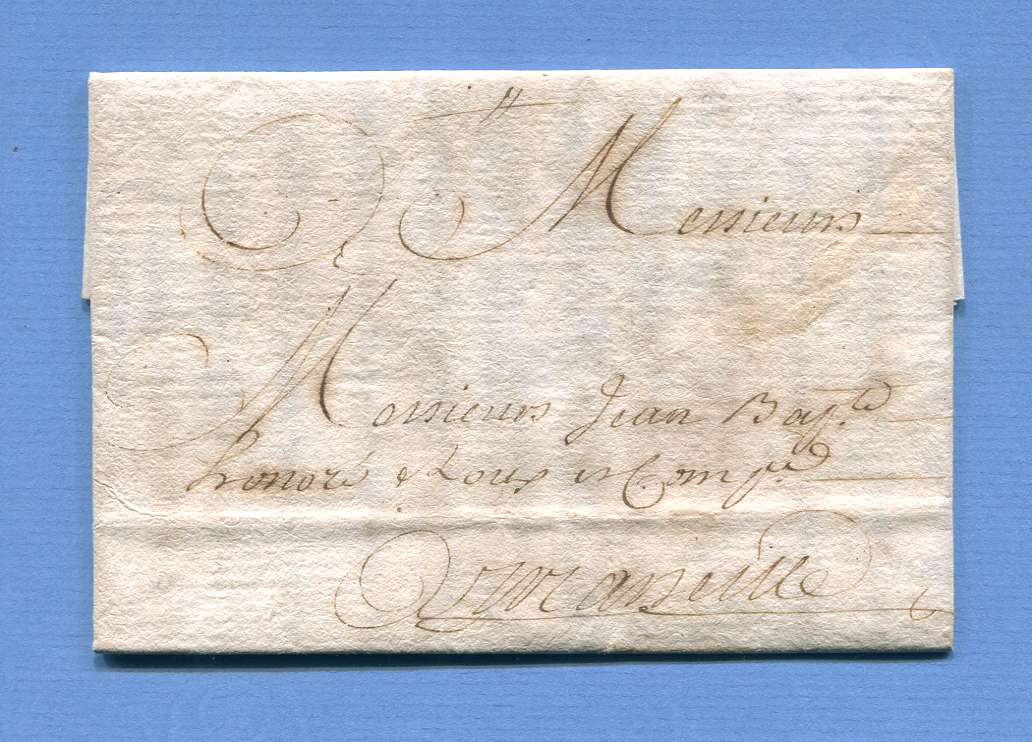 Messieurs
Messieurs Jean Bap.te
honoré & Roux et Comp.e
A Marseille